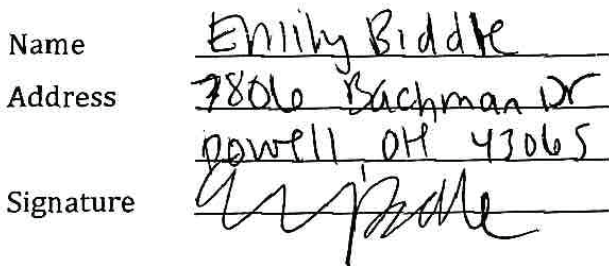 Name Emily Biddle
Address 7806 Bachman Dr
powell OH 43065
Signature